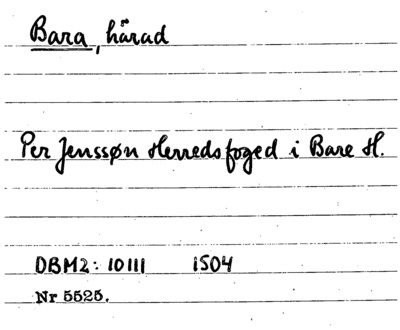 Bara, härad
Per Jenssøn Herredsfoged i Bare H.
DBM2: 10111 1504
Nr 5525.